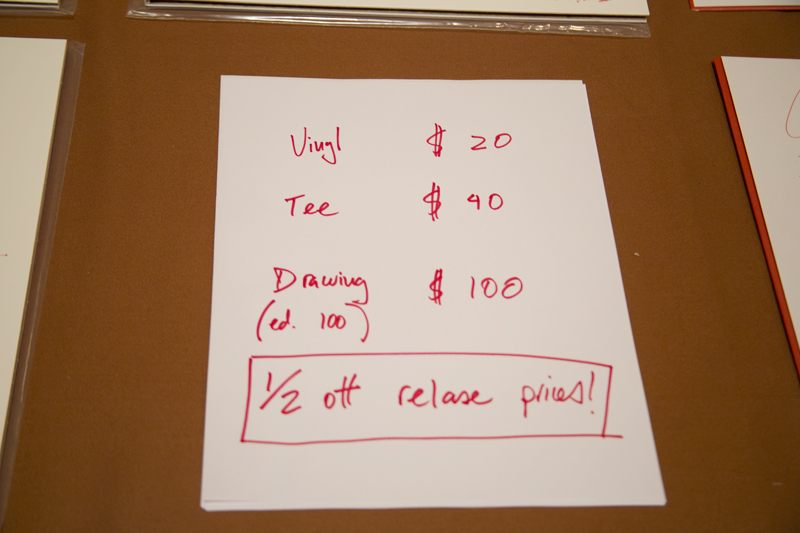 Vinyl $ 20
Tee $ 40
Drawing $ 100
(ed. 100)
1/2 off relase prices!